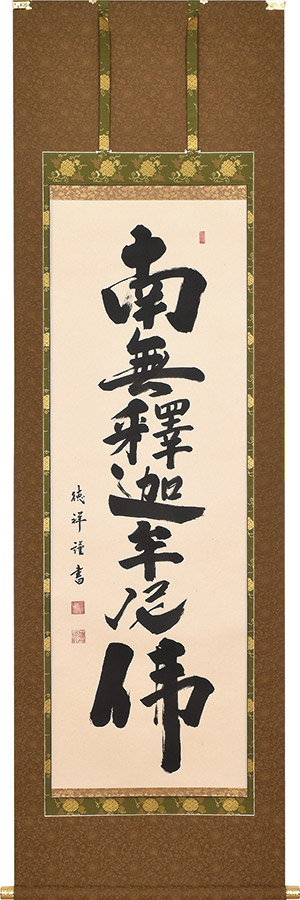 南無釋迦牟尼佛
徳祥謹書